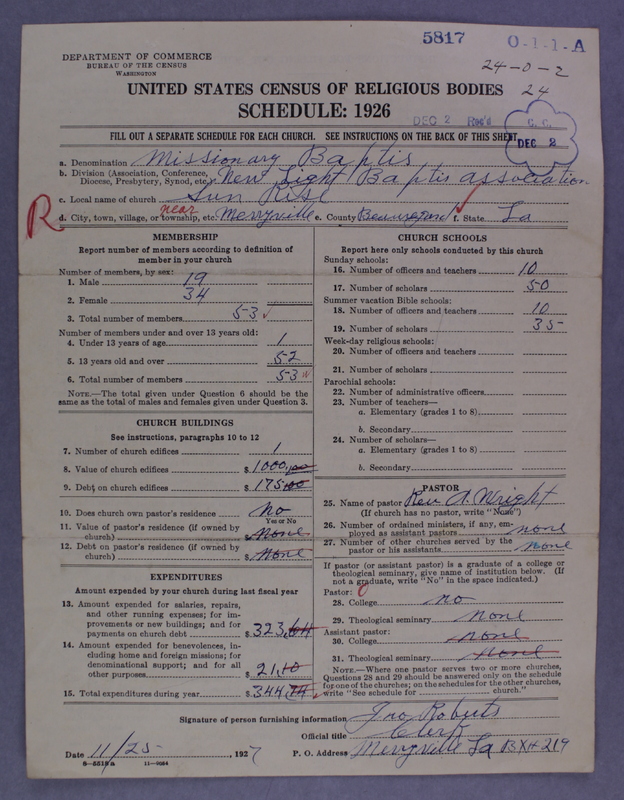 5817 O-1-1-A
DEPARTMENT OF COMMERCE
BUREAU OF THE CENSUS
WASHINGTON
24-0-2
UNITED STATES CENSUS OF RELIGIOUS BODIES 24
SCHEDULE: 1926
DEC 2 Rec'd
DEC 2
FILL OUT A SEPARATE SCHEDULE FOR EACH CHURCH. SEE INSTRUCTIONS ON THE BACK OF THIS SHEET
a. Denomination Missionary Baptis
b. Division (Association, Conference,
Diocese, Presbytery, Synod, etc.) New Light Baptis association
c. Local name of church Sun Rise
R d. City, town, village, or township, etc. near Merryville e. County Beauregard f. State La
MEMBERSHIP
Report number of members according to definition of
member in your church
Number of members, by sex:
1. Male 19
2. Female 34
3. Total number of members 53
Number of members under and over 13 years old:
4. Under 13 years of age 1
5. 13 years old and over 52
6. Total number of members 53
NOTE.—The total given under Question 6 should be the
same as the total of males and females given under Question 3.
CHURCH BUILDINGS
See instructions, paragraphs 10 to 12
7. Number of church edifices 1
8. Value of church edifices $ 1000,00
9. Debt on church edifices $ 175.00
10. Does church own pastor's residence No
Yes or No
11. Value of pastor's residence (if owned by
church) $ None
12. Debt on pastor's residence (if owned by
church) $ None
EXPENDITURES
Amount expended by church during last fiscal year
13. Amount expended for salaries, repairs,
and other running expenses; for im-
provements or new buildings; and for
payments on church debt $ 323.64
14. Amount expended for benevolences, in-
cluding home and foreign missions; for
denominational support; and for all
other purposes $ 21.10
15. Total expenditures during year $ 344.74
CHURCH SCHOOLS
Report here only schools conducted by this church
Sunday schools:
16. Number of officers and teachers 10
17. Number of scholars 50
Summer vacation Bible schools:
18. Number of officers and teachers 10
19. Number of scholars 35
Week-day religious schools:
20. Number of officers and teachers
21. Number of scholars
Parochial schools:
22. Number of administrative officers
23. Number of teachers—
a. Elementary (grades 1 to 8)
b. Secondary
24. Number of scholars—
a. Elementary (grades 1 to 8)
b. Secondary
PASTOR
25. Name of pastor Rev. A. Wright
(If church has no pastor, write "None")
26. Number of ordained ministers, if any, em-
ployed as assistant pastors none
27. Number of other churches served by the
pastor or his assistants none
If pastor (or assistant pastor) is a graduate of a college or
theological seminary, give name of institution below. (If
not a graduate, write "No" in the space indicated.)
Pastor: 0
28. College no
29. Theological seminary none
Assistant pastor:
30. College none
31. Theological seminary none
NOTE.—Where one pastor serves two or more churches,
Questions 28 and 29 should be answered only on the schedule
for one of the churches; on the schedules for the other churches,
write "See schedule for church."
Signature of person furnishing information Jno Roberts
Official title Clerk
Date 11/25 1927 P. O. Address Merryville La BX# 219
8-5518a 11-9054